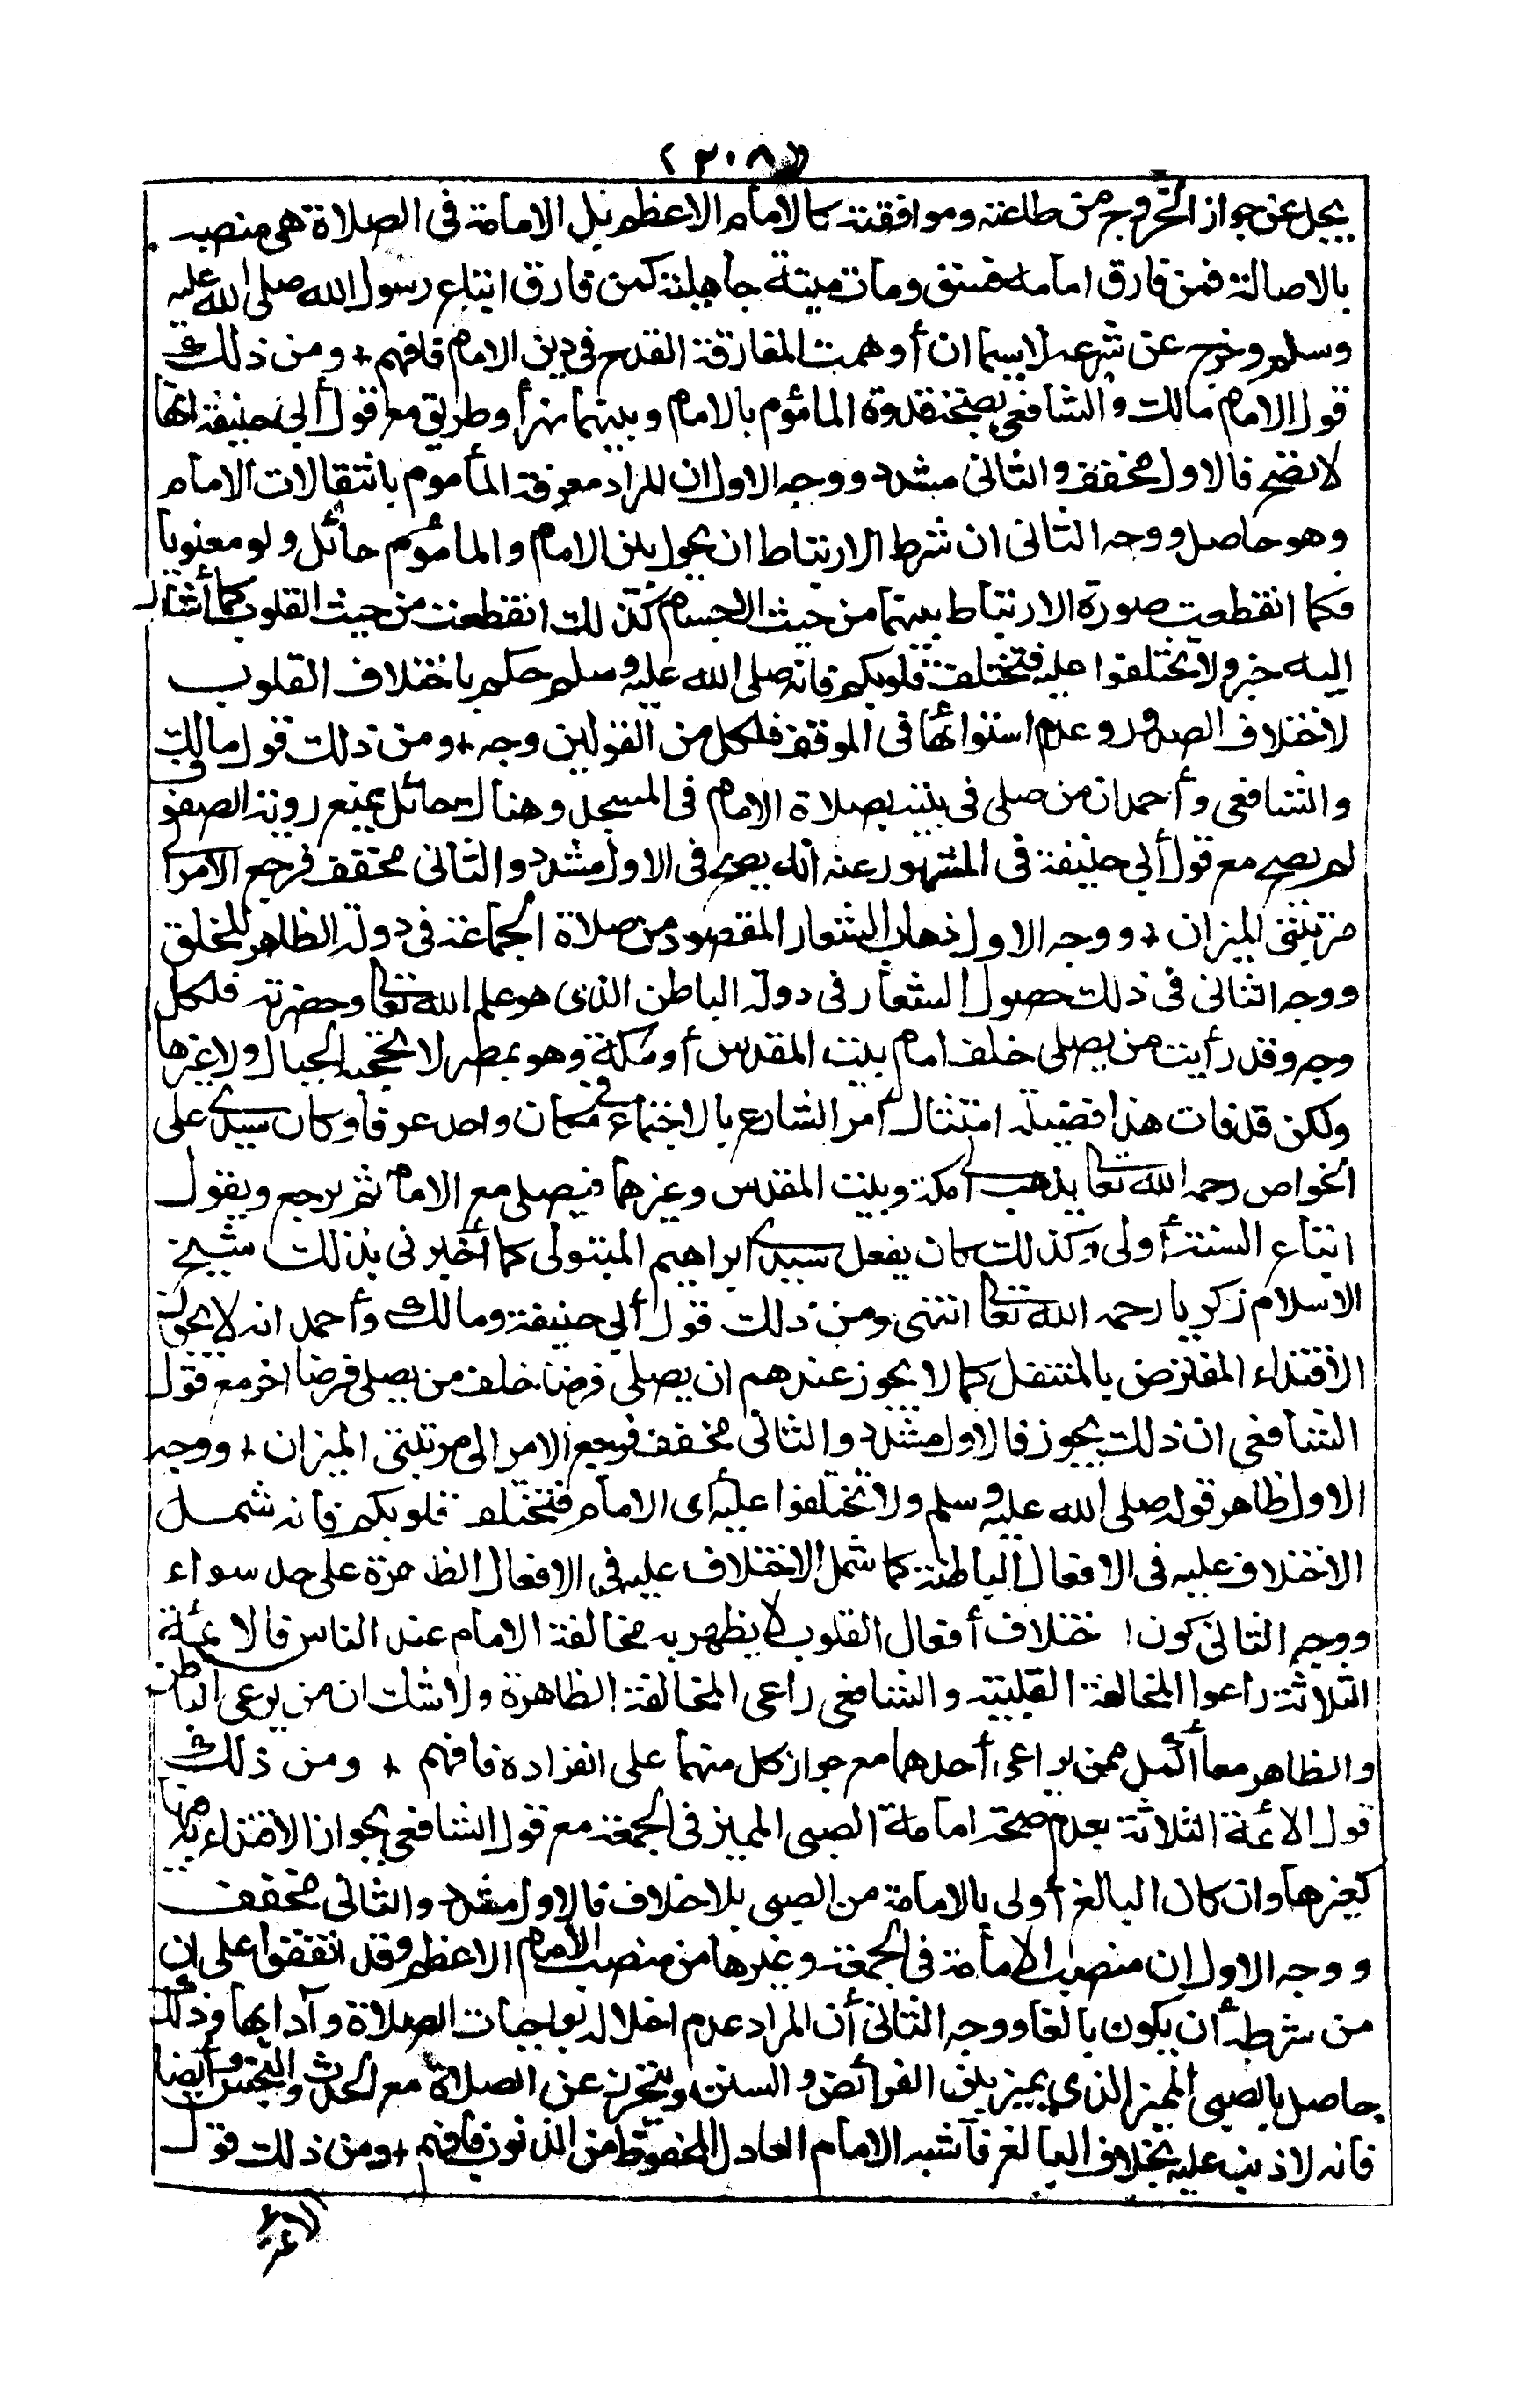 (٢٠٨)
يجل عن جواز الخروج من طاعته وموافقته كالامام الاعظم بل الامامة فى الصلاة هى منصبه
بالاصالة فمن فارق امامه فسق ومات ميتة جاهلية كمن فارق اتباع رسول الله صلى الله عليه
وسلم وخرج عن شرعه لاسيما ان أوهمت المفارقة القدح فى دين الامام فافهم + ومن ذلك
قول الامام مالك والشافعى بصحة قدوة المائموم بالامام وبينهما نهر أو طريق مع قول أبى حنيفة انها
لا تصح فالاول مخفف والثانى مشدد ووجه الاول ان المراد معرفة المأموم بانتقالات الامام
وهو حاصل ووجه الثانى ان شرط الارتباط ان يحول بين الامام والمائموم حائل ولو معنويا
فكما انقطعت صورة الارتباط بينهما من حيث الاجسام كذلك انقطعت من حيث القلوب كما أشار
اليه خبر ولا تختلفوا عليه فتختلف قلوبكم فانه صلى الله عليه وسلم حكم باختلاف القلوب
لاختلاف الصدور وعدم استوائها فى الموقف فلكل من القولين وجه + ومن ذلك قول مالك
والشافعى وأحمد ان من صلى فى بيته بصلاة الامام فى المسجد وهناك حائل يمنع رؤية الصفوف
لم يصح مع قول أبى حنيفة فى المشهور عنه انه يصح فى الاول مشدد والثانى مخفف فرجع الامر الى
مرتبتى الميزان + ووجه الاول ذهاب الشعار المقصود من صلاة الجماعة فى دولة الظاهر للخلق
ووجه الثانى فى ذلك حصول الشعار فى دولة الباطن الذى هو علم الله تعالى وحضرته فلكل
وجه وقد رأيت من يصلى خلف امام بيت المقدس أو مكة وهو بمصر لا تحجبه الجبال ولا غيرها
ولكن قد فات هذا فضيلة امتثال أمر الشارع بالاجتماع فى مكان واحد عرفا وكان سيدى على
الخواص رحمه الله تعالى يذهب الى مكة وبيت المقدس وغيرهما فيصلى مع الامام ثم يرجع ويقول
اتباع السنة أولى وكذلك كان يفعل سيدى ابراهيم المتبولى كما أخبرنى بذلك شيخ
الاسلام زكريا رحمه الله تعالى انتهى ومن ذلك قول أبى حنيفة ومالك وأحمد انه لا يجوز
الاقتداء المفترض بالمتنفل كما لا يجوز عندهم ان يصلى فرضا خلف من يصلى فرضا اخر مع قول
الشافعى ان ذلك يجوز فالاول مشدد والثانى مخفف فرجع الامر الى مرتبتى الميزان + ووجه
الاول ظاهر قوله صلى الله عليه وسلم ولا تختلفوا عليه أى الامام فتختلف قلوبكم فانه شمل
الاختلاف عليه فى الافعال الباطنة كما شمل الاختلاف عليه فى الافعال الظاهرة على حد سواء
ووجه الثانى كون اختلاف أفعال القلوب لا يظهر به مخالفة الامام عند الناس فالائمة
الثلاثة راعوا المخالفة القلبية والشافعى راعى المخالفة الظاهرة ولا شك ان من يرعى الباطن
والظاهر معا أكمل ممن يراعى أحدهما مع جواز كل منهما على انفراده فافهم + ومن ذلك
قول الائمة الثلاثة بعدم صحة امامة الصبى المميز فى الجمعة مع قول الشافعى بجواز الاقتداء به فيها
كغيرها وان كان البالغ أولى بالامامة من الصبى بلا خلاف فالاول مشدد والثانى مخفف
ووجه الاول ان منصب الامامة فى الجمعة وغيرها من منصب الامام الاعظم وقد اتفقوا على ان
من شرطه أن يكون بالغا ووجه الثانى أن المراد عدم اخلاله بواجبات الصلاة وآدابها وذلك
حاصل بالصبى المميز الذى يميز بين الفرائض والسنن ويتحرز عن الصلاة مع الحدث والنجس وأيضا
فانه لا ذنب عليه بخلاف البالغ فأشبه الامام العادل المحفوظ من الذنوب فافهم + ومن ذلك قول